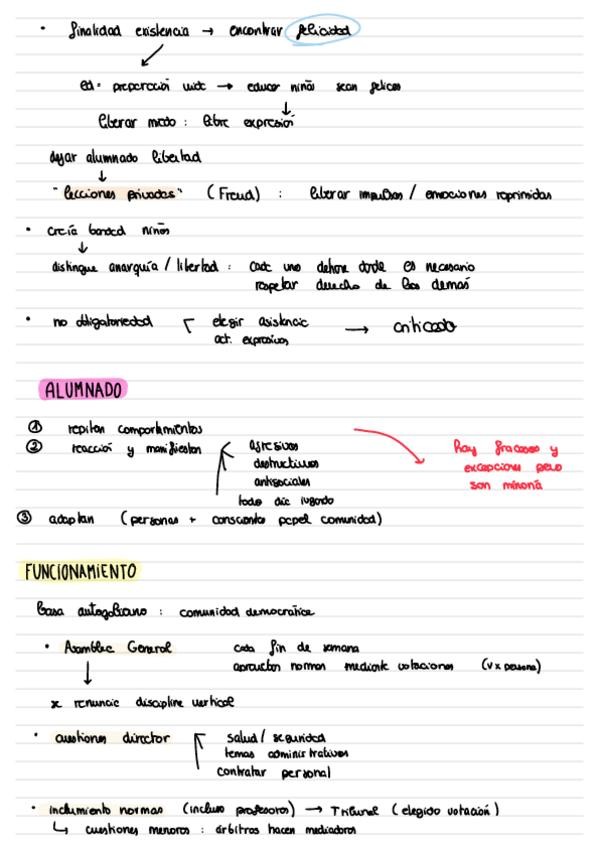 · finalidad existencia → encontrar felicidad
ed = preparación vida → educar niños sean felices
↓
liberar miedo : libre expresión
dejar alumnado libertad
↓
"lecciones privadas" (Freud) : liberar impulsos / emociones reprimidas
· creía bondad niños
↓
distingue anarquía / libertad : cada uno dehore donde es necesario
respetar derecho de los demás
· no obligatoriedad elegir asistencia → criticado
act. expresivas
ALUMNADO
① repiten comportamientos
② reacción y manifiestan agresivos
destructivos
antisociales
todo día jugando
hay fracasos y
excepciones pero
son minoría
③ adaptan (personas + conscientes papel comunidad)
FUNCIONAMIENTO
basa autogobierno : comunidad democrática
· Asamblea General cada fin de semana
aprueban normas mediante votaciones (v x persona)
↓
se renuncia disciplina vertical
· cuestiones director salud / seguridad
temas administrativos
contratar personal
· incumplimiento normas (incluso profesores) → Tribunal (elegido votación)
↳ cuestiones menores : árbitros hacen mediadores